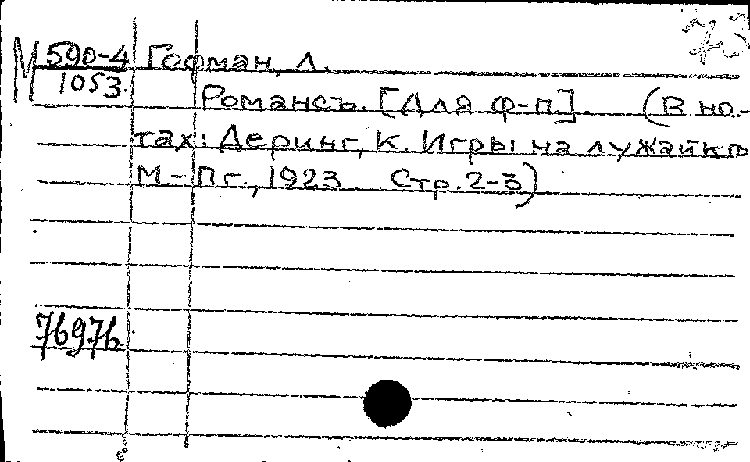 73
М 590-4 Гофман, Л.
1053
Романсъ. [Для ф-п]. (В но-
тах: Деринг, К. Игры на лужайке
М.-Пг., 1923 Стр. 2-3)
76976